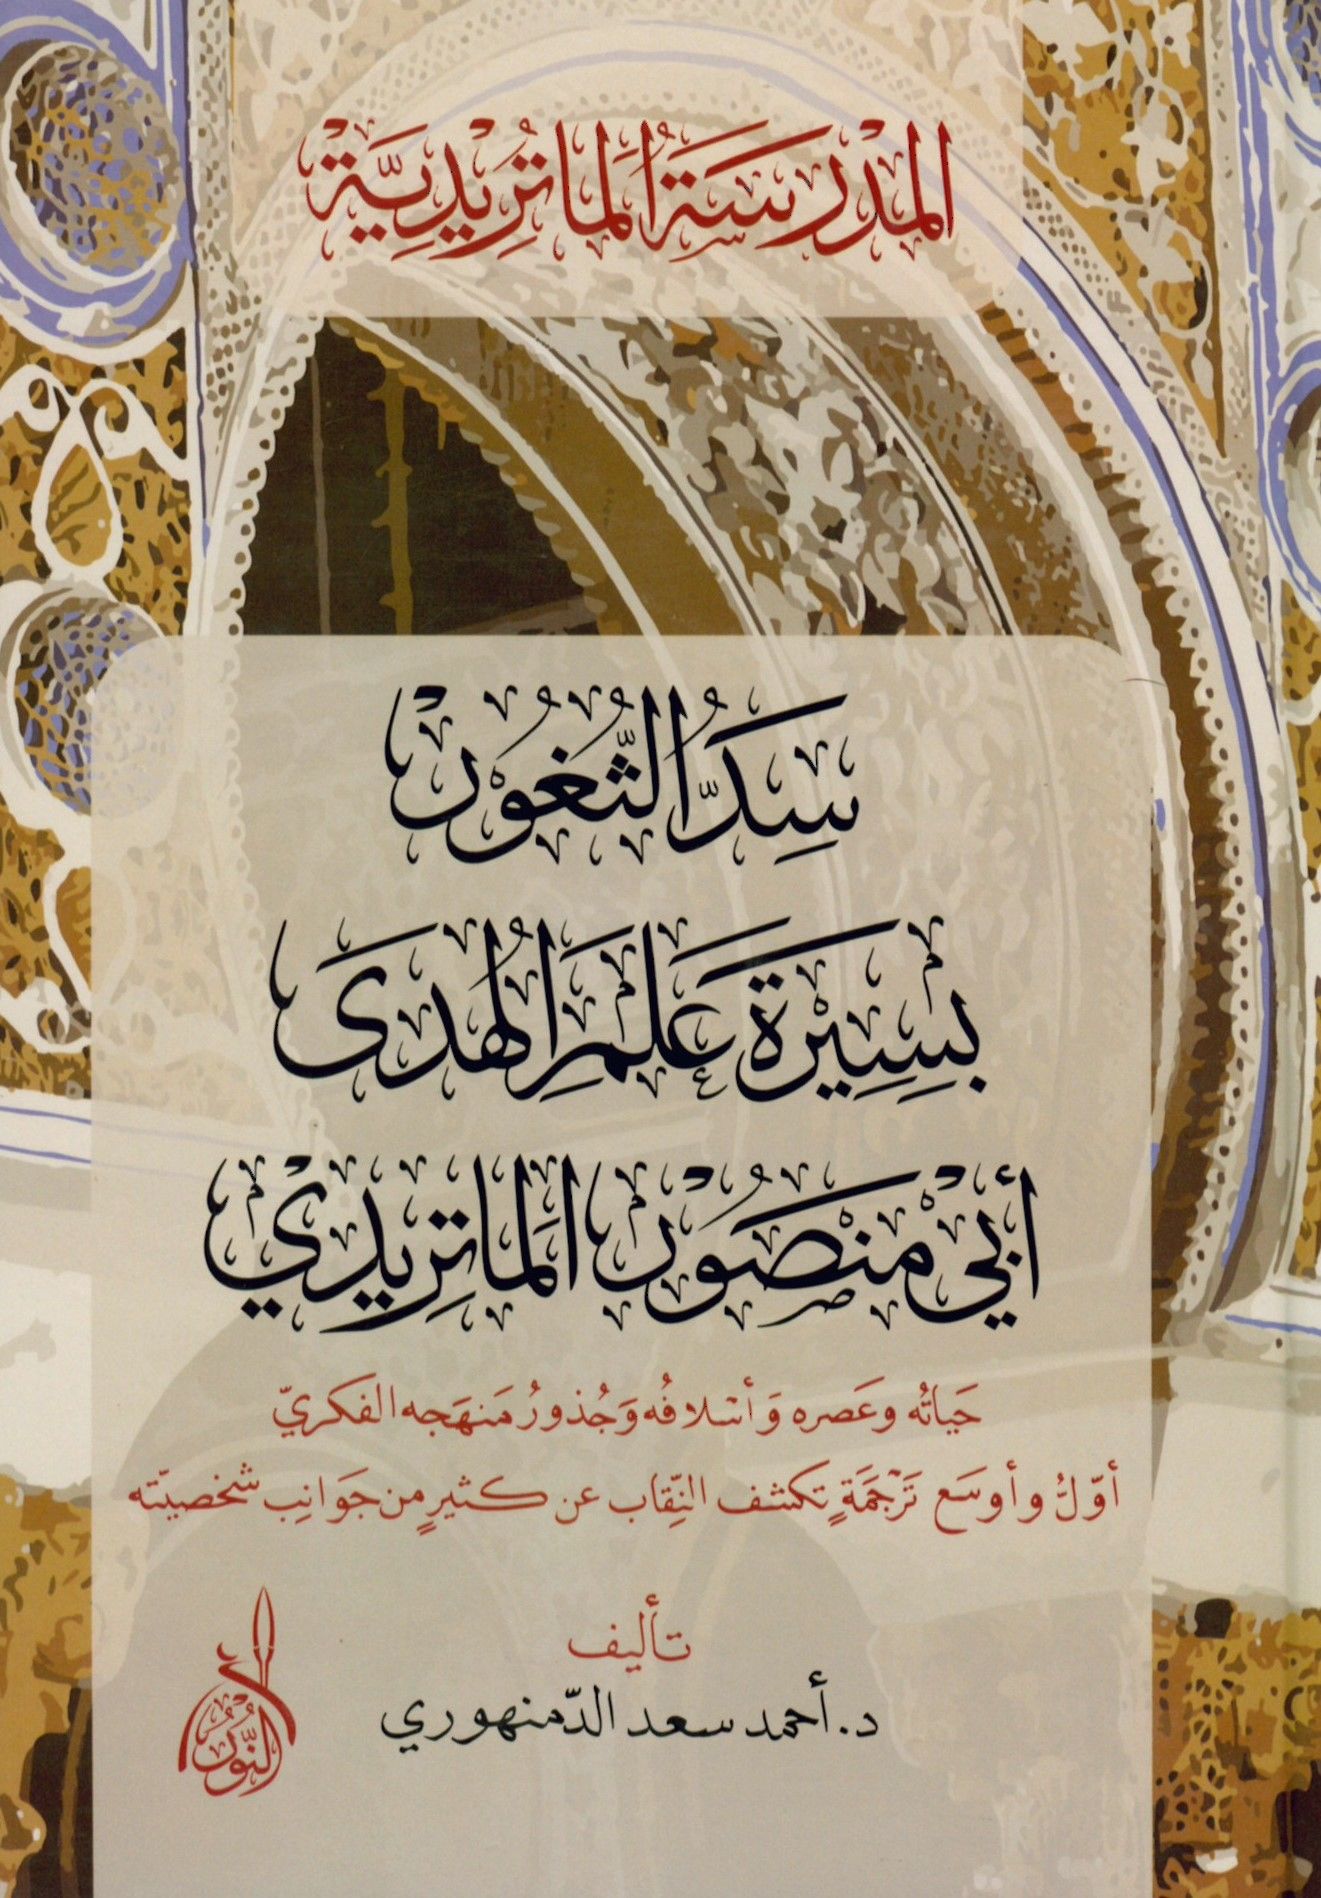 المَدْرَسَةُ المَاتُرِيْدِيَّةْ
سَدُّ الثُّغُوْرْ
بِسِيْرَةِ عَلَمِ الهُدَى
أَبِيْ مَنْصُوْرْ المَاتِرِيدِيْ
حَيَاتُه وعَصره وَأسْلافُه وَجُذورُ مَنهَجه الفكريّ
أوّلُ وأوسَع تَرْجَمَةٍ تكشف النِّقاب عن كثيرٍ من جَوَانِب شخصيّته
تأليف
د. أحمد سعد الدّمنهوري
النُّورُ